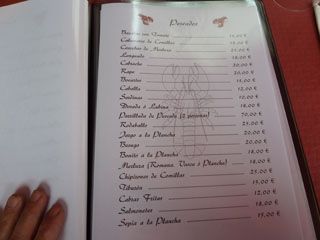 Pescados
Bonito con Tomate 15,00 €
Cabracho de Comillas
Cocochas de Merluza 25,00 €
Lenguado 18,00 €
Cabracho 30,00 €
Rape 20,00 €
Bocartes 15,00 €
Caballa 12,00 €
Sardinas 10,00 €
Dorada ó Lubina 18,00 €
Parrillada de Pescado (2 personas) 70,00 €
Rodaballo 25,00 €
Jargo a la Plancha 20,00 €
Besugo 20,00 €
Bonito a la Plancha 18,00 €
Merluza (Romana, Vasca ó Plancha) 18,00 €
Chipirones de Comillas 25,00 €
Tiburón 15,00 €
Cabras Fritas 12,00 €
Salmonetes 18,00 €
Sepia a la Plancha 15,00 €